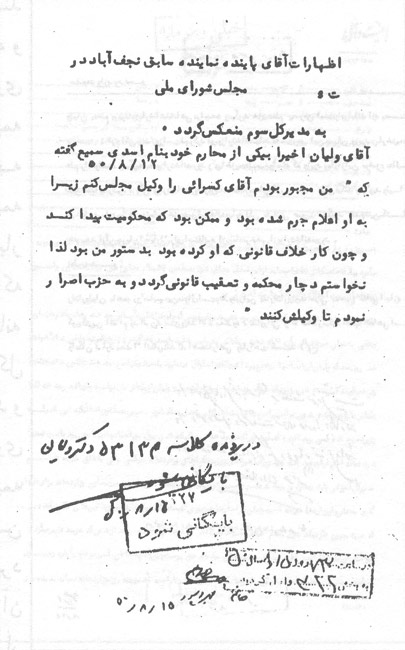 اظهارات آقای پاینده نماینده سابق نجف‌آباد در
مجلس شورای ملی
به مدیر کل سوم منعکس گردد
آقای ولیان اخیرا بیکی از محارم خود بنام اسدی سمیع گفته
۵۰/۸/۱۲
که " من مجبور بودم آقای کسرائی را وکیل مجلس کنم زیرا
به او اعلام جرم شده بود و ممکن بود که محکومیت پیدا کند
و چون کار خلاف قانونی که او کرده بود بدستور من بود لذا
نخواستم دچار محکمه و تعقیب قانونی گردد و به حزب اصرار
نمودم تا وکیلش کنند "
در پرونده کلاسه ۵۳۱۳۸ دکتر ولیان
بایگانی شود
۸/۱۵
بایگانی شود
۵۰/۸/۱۵